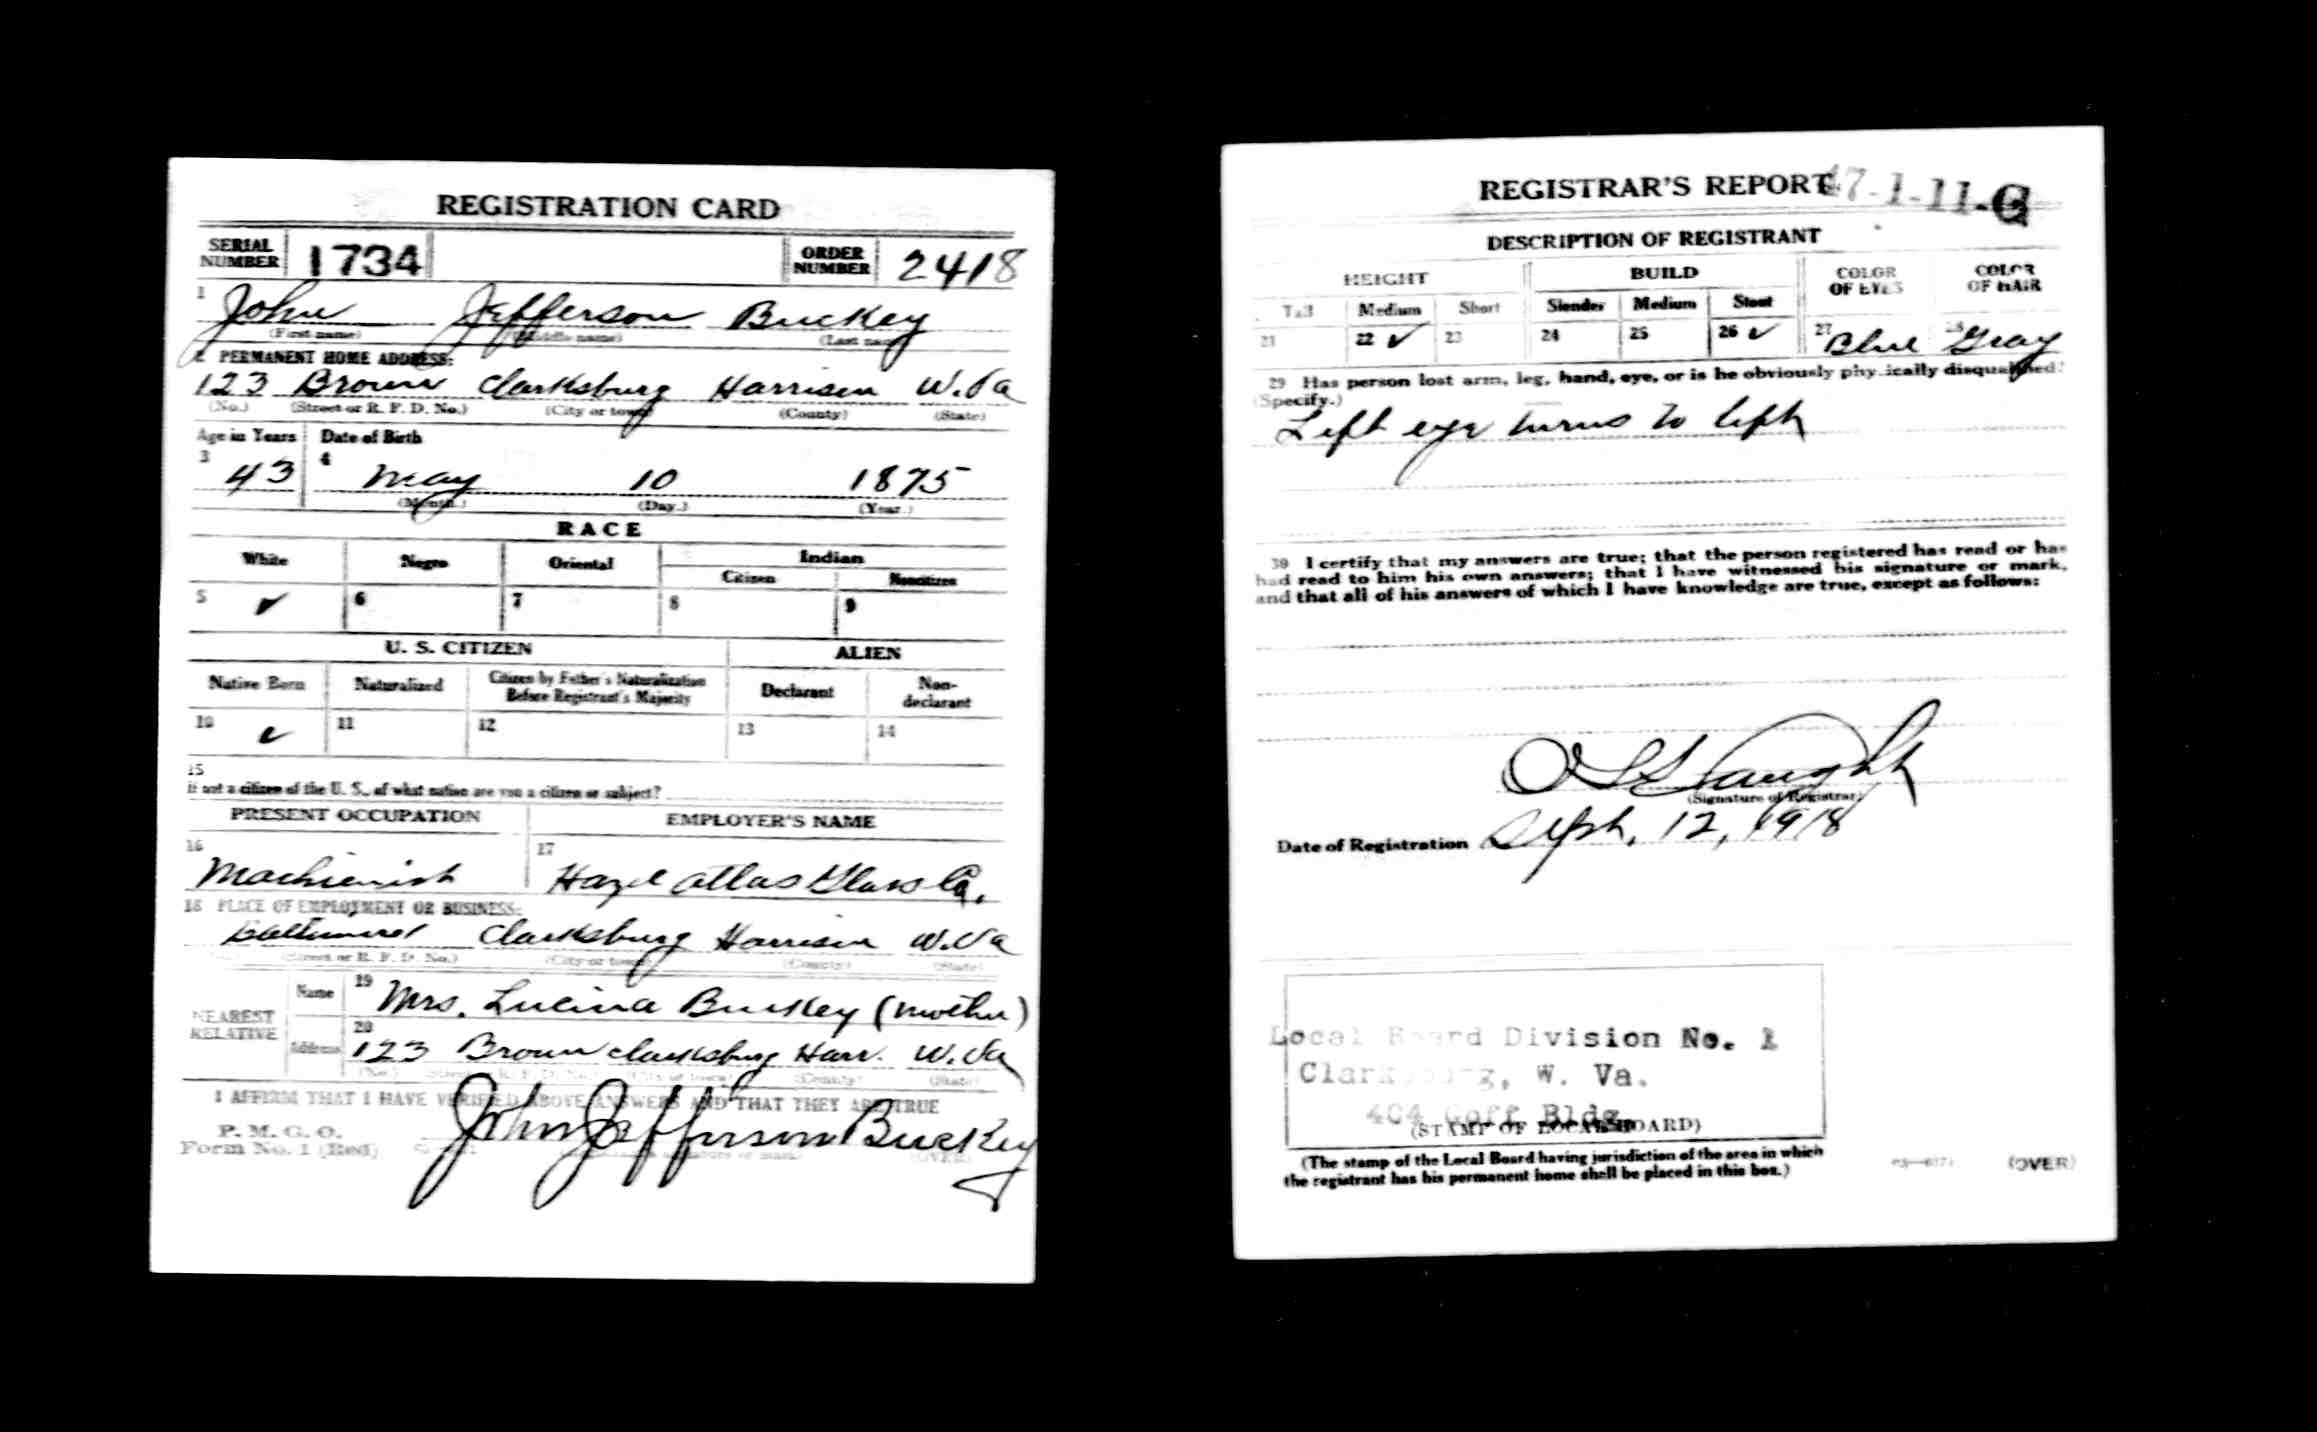 REGISTRATION CARD
SERIAL NUMBER 1734 ORDER NUMBER 2418
1 John Jefferson Buckey
(First name) (Middle name) (Last name)
2 PERMANENT HOME ADDRESS:
123 Brown Clarksburg Harrison W.Va
(No.) (Street or R. F. D. No.) (City or town) (County) (State)
Age in Years Date of Birth
3 43 4 May 10 1875
(Month.) (Day.) (Year.)
RACE
White Negro Oriental Indian
Citizen Noncitizen
5 ✓ 6 7 8 9
U. S. CITIZEN ALIEN
Native Born Naturalized Citizen by Father's Naturalization Before Registrant's Majority Declarant Non-declarant
10 ✓ 11 12 13 14
15
If not a citizen of the U. S., of what nation are you a citizen or subject?
PRESENT OCCUPATION EMPLOYER'S NAME
16 Machienist 17 Hazel Atlas Glass Co.
18 PLACE OF EMPLOYMENT OR BUSINESS:
Clarksburg Harrison W.Va
(Street or R. F. D. No.) (City or town) (County) (State)
NEAREST RELATIVE
Name 19 Mrs. Lucina Buckey (mother)
Address 20 123 Brown Clarksburg Harr. W.Va
(No.) (County) (State)
I AFFIRM THAT I HAVE VERIFIED ABOVE ANSWERS AND THAT THEY ARE TRUE
P. M. G. O.
Form No. 1 (Red) John Jefferson Buckey
(OVER)
REGISTRAR'S REPORT 47-1-11-G
DESCRIPTION OF REGISTRANT
HEIGHT BUILD COLOR OF EYES COLOR OF HAIR
Tall Medium Short Slender Medium Stout
21 22 ✓ 23 24 25 26 ✓ 27 Blue 28 Gray
29 Has person lost arm, leg, hand, eye, or is he obviously physically disqualified?
(Specify.)
Left eye turns to left
30 I certify that my answers are true; that the person registered has read or has
had read to him his own answers; that I have witnessed his signature or mark,
and that all of his answers of which I have knowledge are true, except as follows:
(Signature of Registrar)
Date of Registration Sept. 12, 1918
Local Board Division No. 1
Clarksburg, W. Va.
404 Goff Bldg.
(STAMP OF LOCAL BOARD)
(The stamp of the Local Board having jurisdiction of the area in which
the registrant has his permanent home shall be placed in this box.)
(OVER)